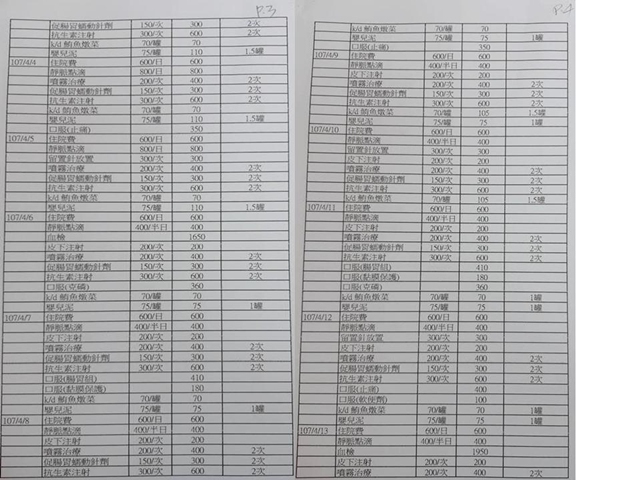 P.3
促腸胃蠕動針劑 150/次 300 2次
抗生素注射 300/次 600 2次
k/d 鮪魚燉菜 70/罐 70
嬰兒泥 75/罐 110 1.5罐
107/4/4 住院費 600/日 600
靜脈點滴 800/日 800
噴霧治療 200/次 400 2次
促腸胃蠕動針劑 150/次 300 2次
抗生素注射 300/次 600 2次
k/d 鮪魚燉菜 70/罐 70
嬰兒泥 75/罐 110 1.5罐
口服(止痛) 350
107/4/5 住院費 600/日 600
靜脈點滴 800/日 800
留置針放置 300/次 300
噴霧治療 200/次 400 2次
促腸胃蠕動針劑 150/次 300 2次
抗生素注射 300/次 600 2次
k/d 鮪魚燉菜 70/罐 70
嬰兒泥 75/罐 110 1.5罐
107/4/6 住院費 600/日 600
靜脈點滴 400/半日 400
血檢 1650
皮下注射 200/次 200
噴霧治療 200/次 400 2次
促腸胃蠕動針劑 150/次 300 2次
抗生素注射 300/次 600 2次
口服(克磷) 360
k/d 鮪魚燉菜 70/罐 70
嬰兒泥 75/罐 75 1罐
107/4/7 住院費 600/日 600
靜脈點滴 400/半日 400
皮下注射 200/次 200
噴霧治療 200/次 400 2次
促腸胃蠕動針劑 150/次 300 2次
抗生素注射 300/次 600 2次
口服(腸胃組) 410
口服(黏膜保護) 180
k/d 鮪魚燉菜 70/罐 70
嬰兒泥 75/罐 75 1罐
107/4/8 住院費 600/日 600
靜脈點滴 400/半日 400
皮下注射 200/次 200
噴霧治療 200/次 400 2次
促腸胃蠕動針劑 150/次 300 2次
抗生素注射 300/次 600 2次
P.4
k/d 鮪魚燉菜 70/罐 70
嬰兒泥 75/罐 75 1罐
口服(止痛) 350
107/4/9 住院費 600/日 600
靜脈點滴 400/半日 400
皮下注射 200/次 200
噴霧治療 200/次 400 2次
促腸胃蠕動針劑 150/次 300 2次
抗生素注射 300/次 600 2次
k/d 鮪魚燉菜 70/罐 105 1.5罐
嬰兒泥 75/罐 75 1罐
107/4/10 住院費 600/日 600
靜脈點滴 400/半日 400
留置針放置 300/次 300
皮下注射 200/次 200
噴霧治療 200/次 400 2次
促腸胃蠕動針劑 150/次 300 2次
抗生素注射 300/次 600 2次
k/d 鮪魚燉菜 70/罐 105 1.5罐
107/4/11 住院費 600/日 600
靜脈點滴 400/半日 400
皮下注射 200/次 200
噴霧治療 200/次 400 2次
促腸胃蠕動針劑 150/次 300 2次
抗生素注射 300/次 600 2次
口服(腸胃組) 410
口服(黏膜保護) 180
口服(克磷) 360
k/d 鮪魚燉菜 70/罐 70 1罐
嬰兒泥 75/罐 75 1罐
107/4/12 住院費 600/日 600
靜脈點滴 400/半日 400
留置針放置 300/次 300
皮下注射 200/次 200
噴霧治療 200/次 400 2次
促腸胃蠕動針劑 150/次 300 2次
抗生素注射 300/次 600 2次
口服(止痛) 400
口服(軟便劑) 100
k/d 鮪魚燉菜 70/罐 70 1罐
嬰兒泥 75/罐 75 1罐
107/4/13 住院費 600/日 600
靜脈點滴 400/半日 400
血檢 1950
皮下注射 200/次 200
噴霧治療 200/次 400 2次